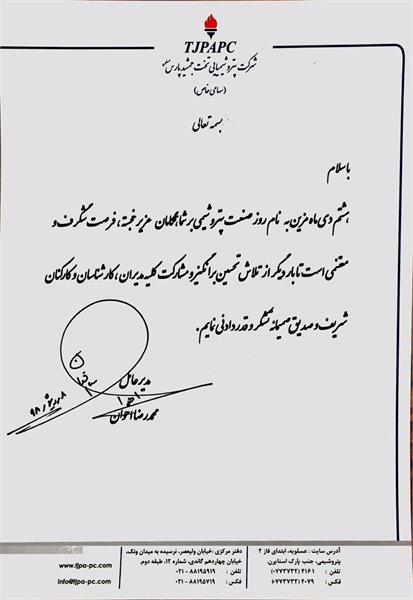 TJPAPC
شرکت پتروشیمیایی تخت جمشید پارس
(سهامی خاص)
بسمه تعالی
با سلام
هشتم دی ماه مزین به نام روز صنعت پتروشیمی بر شما همگامان عزیز خجسته، فرصت شگرف و
مغتنمی است تا بار دیگر از تلاش تحسین برانگیز و مشارکت کلیه مدیران، کارشناسان و کارکنان
شریف و صدیق صمیمانه تشکر و قدردانی نمایم.
مدیر عامل
محمدرضا اخوان
آدرس سایت : عسلویه، ابتدای فاز ۲
پتروشیمی، جنب پارک استایرن.
تلفن : ۴۱۶۱ (۰۷۷۳۷۳۲)
فکس : ۴۰۷۹ (۰۷۷۳۷۳۲)
دفتر مرکزی : خیابان ولیعصر، نرسیده به میدان ونک،
خیابان چهاردهم گاندی، شماره ۱۲، طبقه دوم.
تلفن : ۸۸۱۹۵۹۱۹ - ۰۲۱
فکس : ۸۸۱۹۵۷۱۹ - ۰۲۱
www.tjpa-pc.com
info@tjpa-pc.com